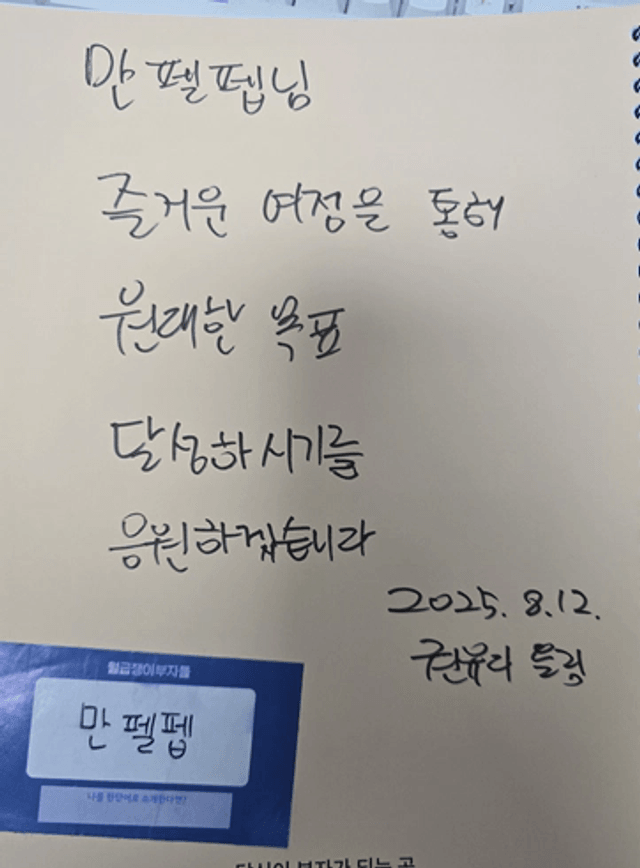 만 펠펩님
즐거운 여정을 통해
원대한 목표
달성하시기를
응원하겠습니다
2025. 8.12.
권유디 드림
월급쟁이부자들
만 펠펩
나를 한단어로 소개한다면?
당신이 부자가 되는 곳